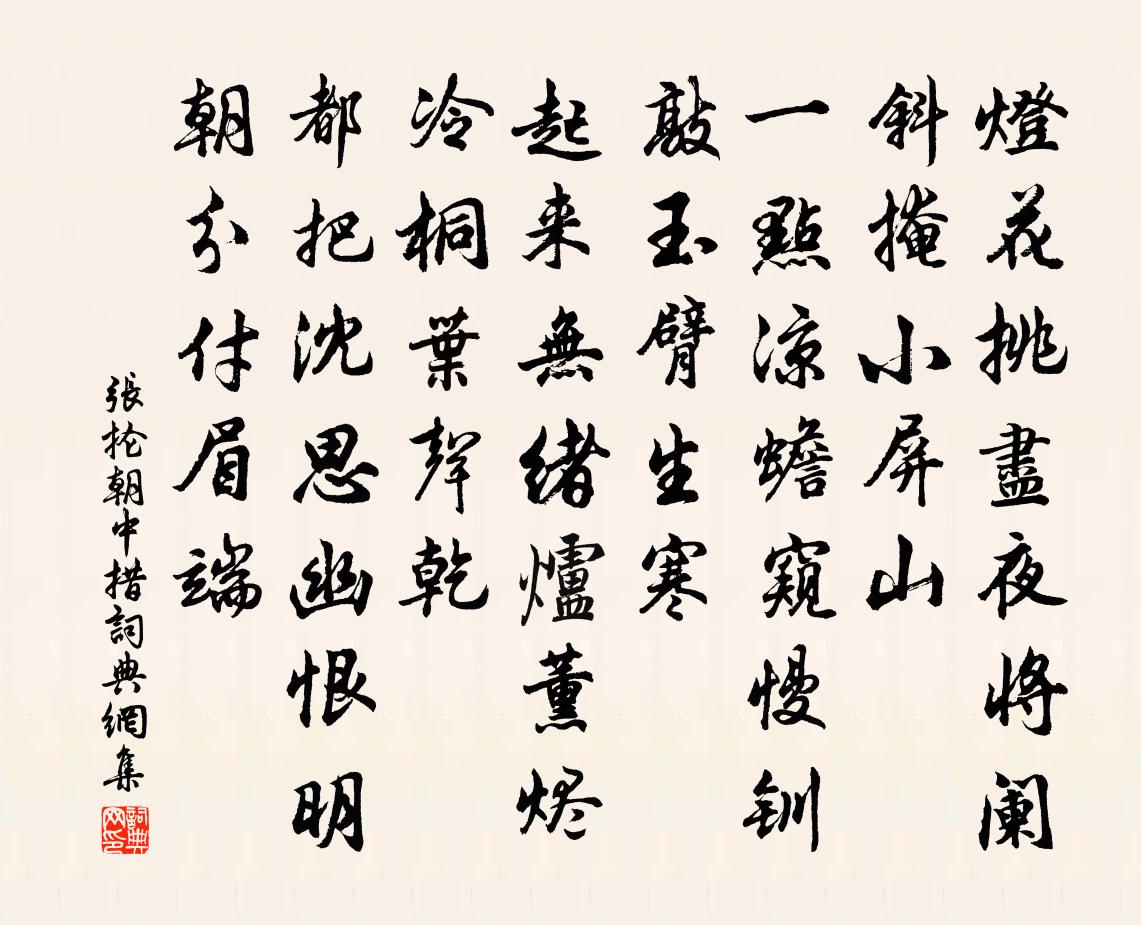 燈花挑盡夜将阑
斜掩小屏山
一點凉蟾窺慢钏
敲玉臂生寒
起来無緒爐薰烬
冷桐葉聲乾
都把沈思幽恨明
朝分付眉端
張抡朝中措詞典網集
詞典网印